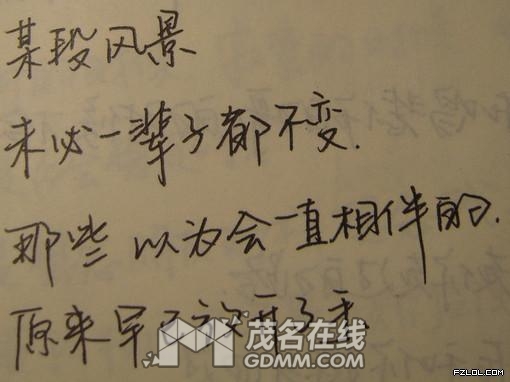 某段风景
未必一辈子都不变.
那些以为会一直相伴的.
原来早已放开了手
茂名在线
GDMM.COM
FZLOL.COM